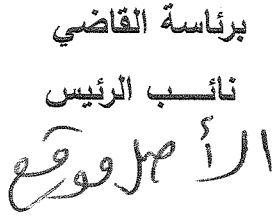 برئاسة القاضي
نائب الرئيس
الأصل موقع